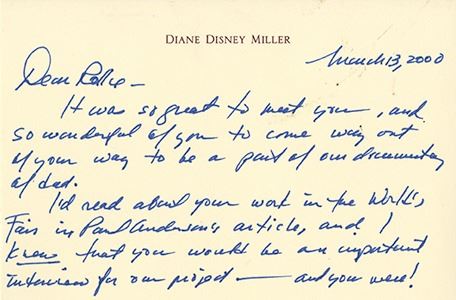 DIANE DISNEY MILLER
March 13, 2000
Dear Rolie –
It was so great to meet you, and
so wonderful of you to come way out
of your way to be a part of our documentary
of dad.
I'd read about your work in the World's
Fair in Paul Anderson's article, and I
knew that you would be an important
interview for our project — and you were!